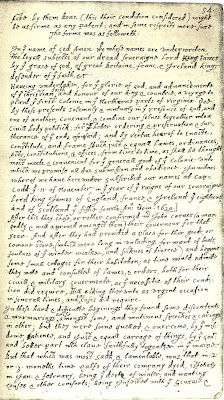 54
by them done (this their condition considered) might
be as firme as any patent; and in some respects more sure.
The forme was as followeth.
In yͤ name of god Amen. We whose names are underwriten,
the loyall subjects of our dread soveraigne Lord King James
by yͤ grace of god, of great britaine, franc, & Ireland king,
defender of yͤ faith, &c
Haveing undertaken, for yͤ glorie of god, and advancemente
of yͤ christian faith and honour of our king & countrie, a voyage to
plant yͤ first colonie in yͤ Northerne parts of Virginia. doe
by these presents solemnly & mutualy in yͤ presence of god, and
one of another, covenant, & combine our selves togeather into a
civill body politick; for our better ordering, & preservation & fur-
therance of yͤ ends aforesaid; and by vertue hearof to enacte,
constitute, and frame such just & equall lawes, ordinances,
Acts, constitutions, & offices, from time to time, as shall be thought
most meete & convenient for yͤ generall good of yͤ Colonie: unto
which we promise all due submission and obedience. In witnes
wherof we have hereunder subscribed our names at cap-
Codd yͤ 11 of November, in yͤ year of yͤ raigne of our soveraigne
Lord king James of England, france, & Ireland yͤ eighteenth
and of Scotland yͤ fiftie fourth. Ano: Dom. 1620.
After this they chose, or rather confirmed mr John carver (a man
godly & well approved amongst them) their Governour for that
year. And after they had provided a place for their goods or
comone store, (which were long in unlading for want of boats,
foulnes of yͤ winter weather, and sicknes of diverce) and begune
some small cottages for their habitation; as time would admitte
they mette and consulted of lawes, & orders, both for their
civill & military Governmente, as yͤ necessitie of their condi-
tion did require, still adding therunto as urgent occasion
in severall times, and as cases did require.
In these hard & difficulte beginings they found some discontents
& murmurings arise amongst some, and mutinous speeches & cariags
in other; but they were soone quelled, & overcome, by yͤ wis-
dome, patience, and just & equall carrage of things, by yͤ Govr
and better part wch clave faithfully togeather in yͤ maine.
But that which was most sadd, & lamentable, was, that in 2.
or 3. moneths time halfe of their company dyed, espetialy
in Jan: & february, being yͤ depth of winter, and wanting
houses & other comforts; being infected with yͤ Scurvie &